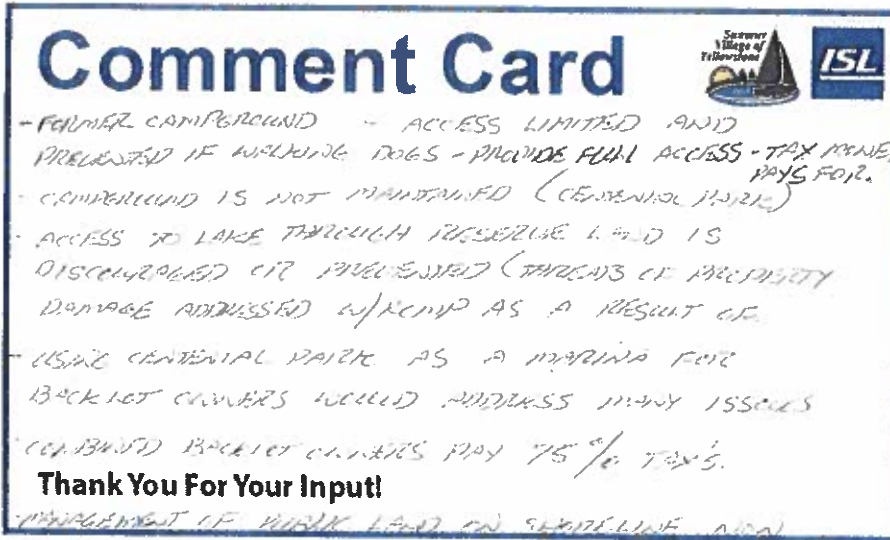 Comment Card
Summer
Village of
Yellowstone
ISL
- FORMER CAMPGROUND - ACCESS LIMITED AND
PREVENTED IF WALKING DOGS - PROVIDE FULL ACCESS - TAX MONEY
PAYS FOR.
- CAMPGROUND IS NOT MAINTAINED (CENTENIAL PARK)
- ACCESS TO LAKE THROUGH RESERVE LAND IS
DISCOURAGED OR PREVENTED (THREATS OF PROPERTY
DAMAGE ADDRESSED W/RCMP AS A RESULT OF
- USING CENTENIAL PARK AS A MARINA FOR
BACKLOT OWNERS WOULD ADDRESS MANY ISSUES
- COMBINED BACKLOT OWNERS PAY 75% TAX'S.
Thank You For Your Input!
- MANAGEMENT OF PUBLIC LAND ON SHORELINE NON